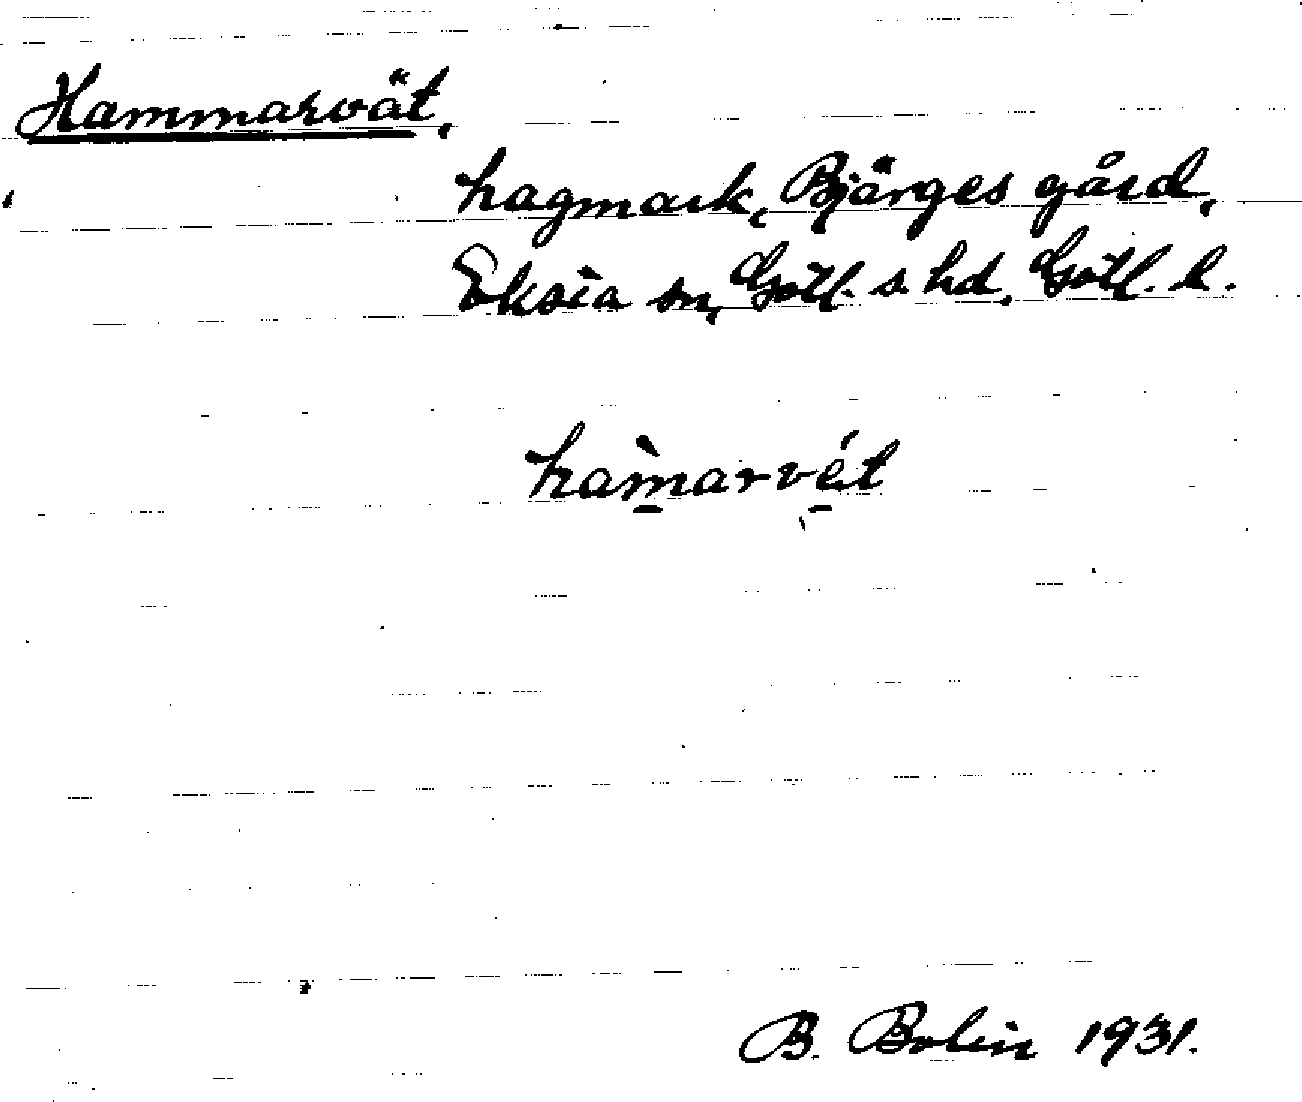 Hammarvät,
hagmark, Bjärges gård,
Eksta sn, Gotl. s. hd, Gotl. l.
hàm̱arvét̠
B. Bolin 1931.